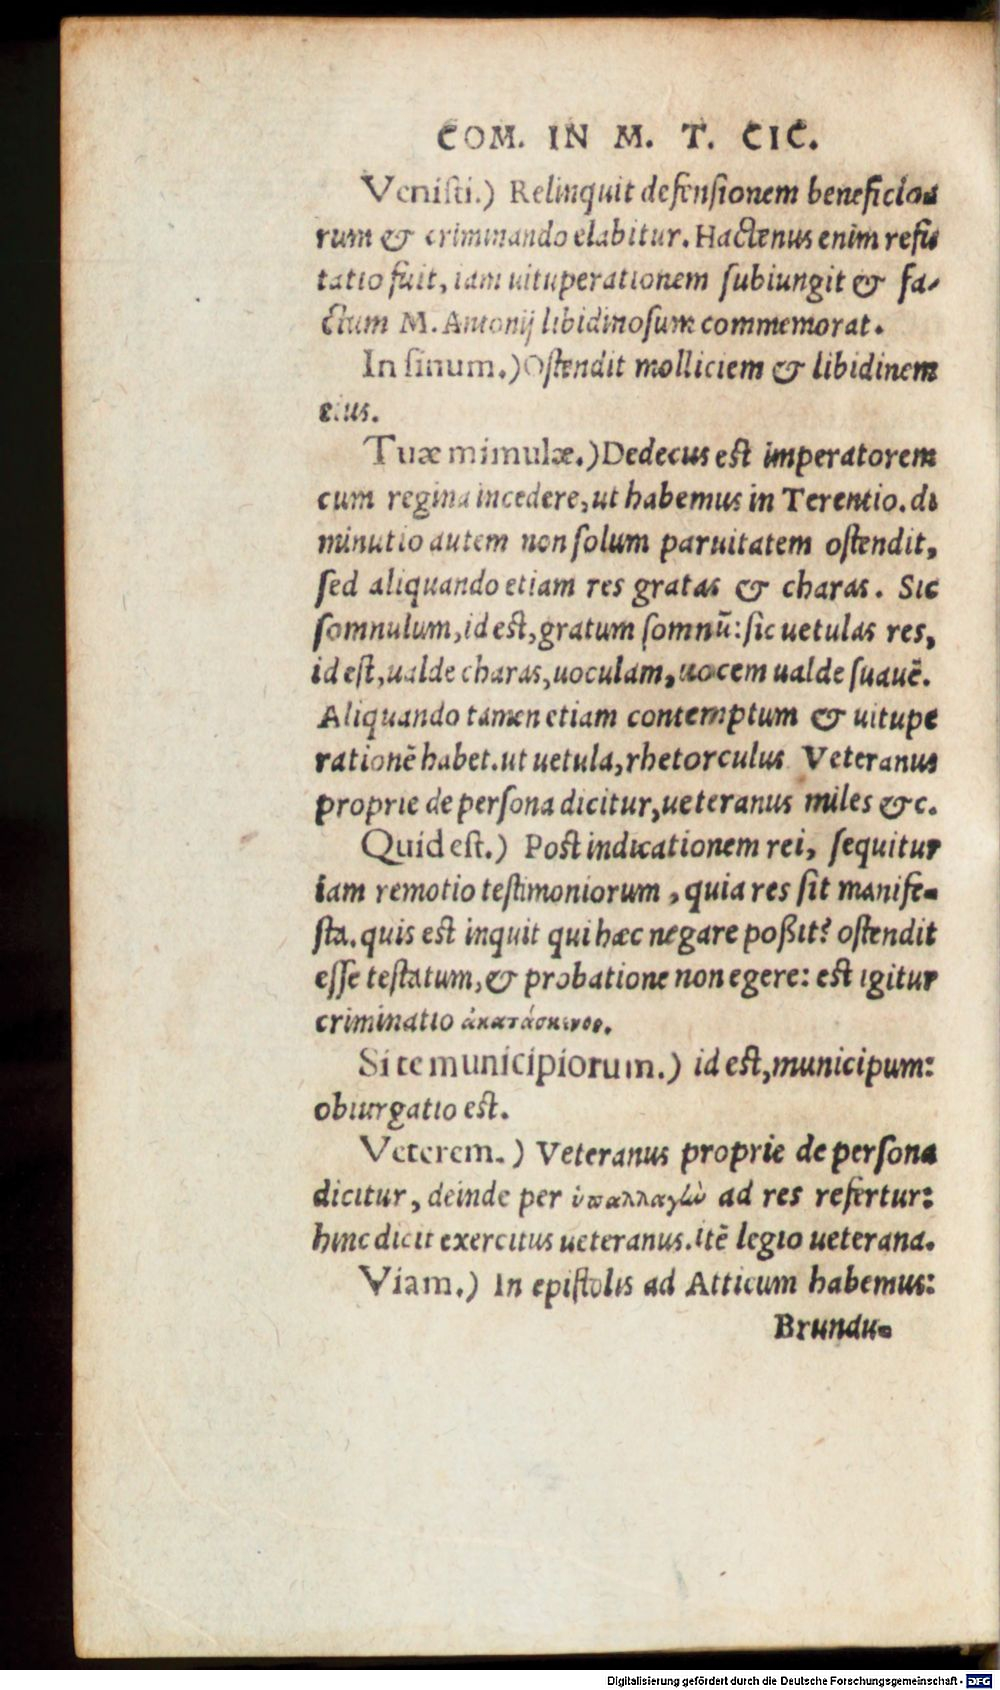 COM. IN M. T. CIC.
Veniſti.) Relinquit defenſionem beneficio⸗
rum & criminando elabitur. Hactenus enim refu
tatio fuit, iam uituperationem ſubiungit & fa⸗
ctum M. Antonij libidinoſum commemorat.
In ſinum.) Oſtendit molliciem & libidinem
eius.
Tuæ mimulæ.) Dedecus eſt imperatorem
cum regina incedere, ut habemus in Terentio. di
minutio autem non ſolum paruitatem oſtendit,
ſed aliquando etiam res gratas & charas. Sic
ſomnulum, id eſt, gratum ſomnū: ſic uetulas res,
id eſt, ualde charas, uoculam, uocem ualde ſuauē.
Aliquando tamen etiam contemptum & uitupe
rationē habet. ut uetula, rhetorculus Veteranus
proprie de perſona dicitur, ueteranus miles &c.
Quid eſt.) Poſt indicationem rei, ſequitur
iam remotio teſtimoniorum, quia res ſit manife⸗
ſta. quis eſt inquit qui hæc negare poßit? oſtendit
eſſe teſtatum, & probatione non egere: eſt igitur
criminatio ἀκατάσκευος.
Si te municipiorum.) id eſt, municipum:
obiurgatio eſt.
Veterem.) Veteranus proprie de perſona
dicitur, deinde per ὑπαλλαγὼ ad res refertur:
hinc dicit exercitus ueteranus. itē legio ueterana.
Viam.) In epiſtolis ad Atticum habemus:
Brundu⸗
Digitalisierung gefördert durch die Deutsche Forschungsgemeinschaft - DFG